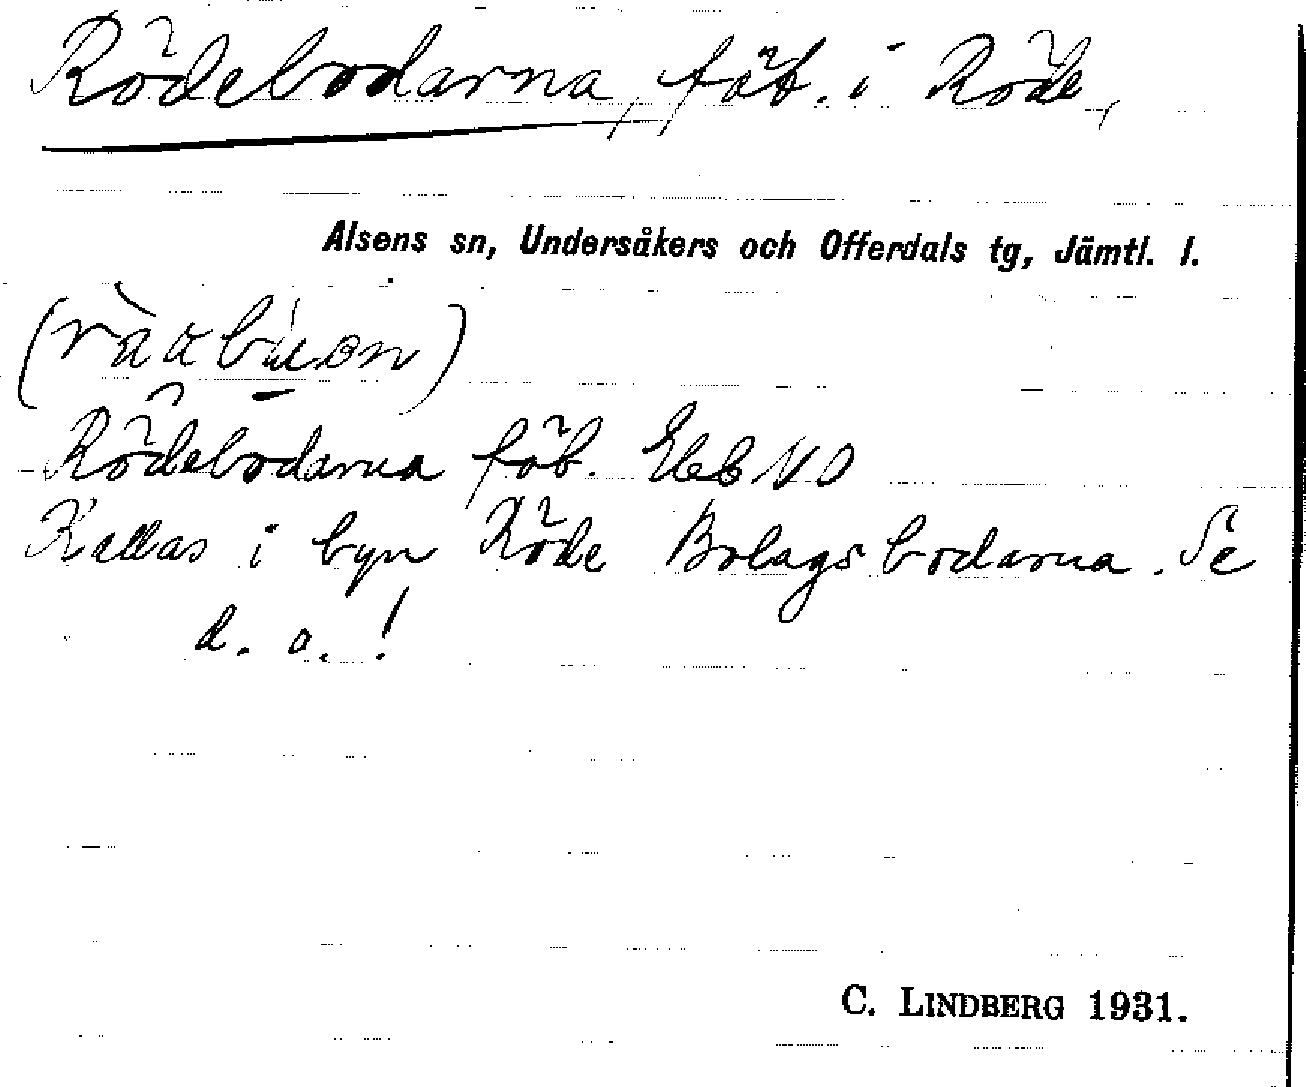 Rödebodarna, fäb. i Röde,
Alsens sn, Undersåkers och Offerdals tg, Jämtl. l.
Rödebodarna fäb. Ekb NO
Kallas i byn Röde Bolagsbodarna. Se
d. o. !
C. LINDBERG 1931.